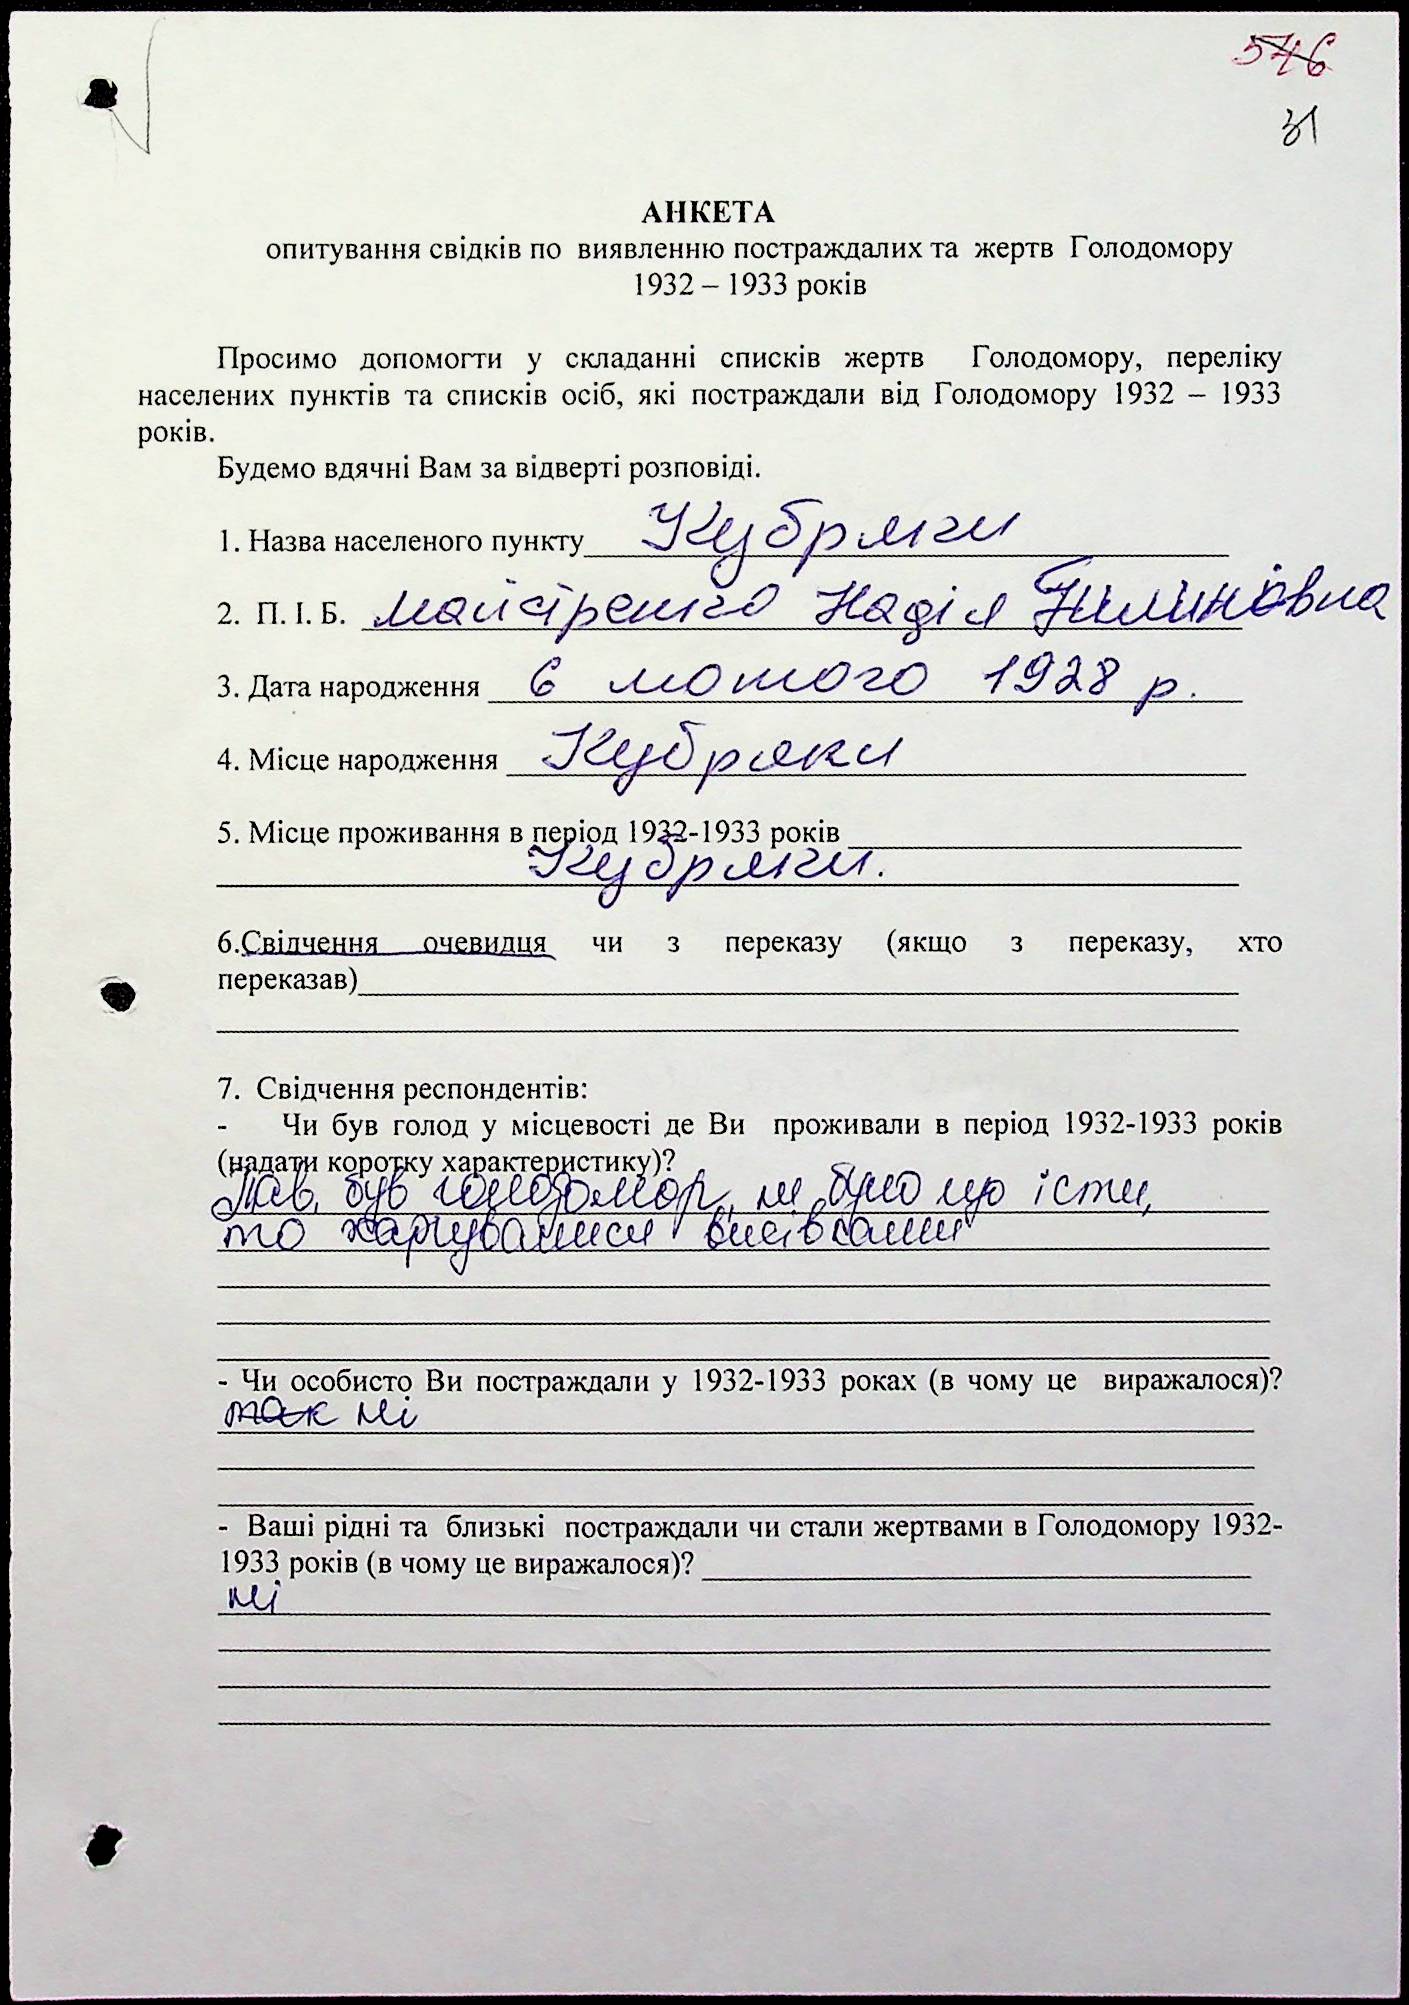 546
31
АНКЕТА
опитування свідків по виявленню постраждалих та жертв Голодомору
1932 – 1933 років
Просимо допомогти у складанні списків жертв Голодомору, переліку
населених пунктів та списків осіб, які постраждали від Голодомору 1932 – 1933
років.
Будемо вдячні Вам за відверті розповіді.
1. Назва населеного пункту Кубряки
2. П. І. Б. Майстренко Надія
3. Дата народження 6 лютого 1928 р.
4. Місце народження Кубряки
5. Місце проживання в період 1932-1933 років
Кубряки.
6.Свідчення очевидця чи з переказу (якщо з переказу, хто
переказав)
7. Свідчення респондентів:
- Чи був голод у місцевості де Ви проживали в період 1932-1933 років
(надати коротку характеристику)?
був голодомор, не було що їсти,
то харчувалися висівками
- Чи особисто Ви постраждали у 1932-1933 роках (в чому це виражалося)?
так ні
- Ваші рідні та близькі постраждали чи стали жертвами в Голодомору 1932-
1933 років (в чому це виражалося)?
ні